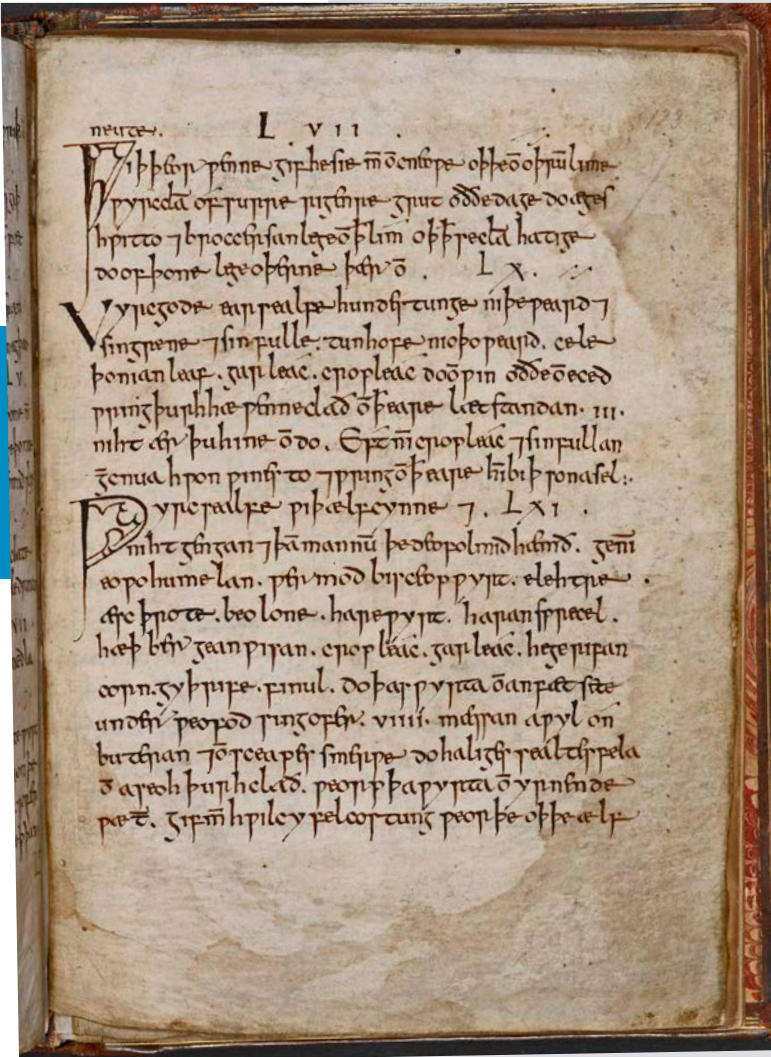 neate. L VII .
Ƿiþ þeor ƿenne gif he sie m̄ on cneoƿe oþþe on oþrū lime
ƿyrc clā of surre rigenre grut oððe dage do æges
hƿitto ⁊ brocces san lege on þ lim oþ þ se clā hatige
do of þone lege oþerne þær on . LX .
Ƿyrc gode earsealfe hundes tunge niþeƿeard ⁊
singrene ⁊ sinfulle . tunhofe nioþoƿeard . cele
þonian leaf . gar leac . cropleac do on ƿin oððe on eced
ƿring þurh hæƿenne clað on þ eare læt standan . III .
niht ær þu hine on do . Eft nī cropleac ⁊ sinfullan
genua hƿon ƿines to ⁊ ƿring on þ eare hī biþ sona sel :.
Ƿyrc sealfe ƿiþ ælfcynne ⁊ . LXI .
niht gengan ⁊ þā mannū þe deofol mid hæmð . genī
eoƿohumelan . ƿermod bisceopƿyrt . elehtre .
æsc þrote . beolone . hareƿyrt . haran sprecel .
hæþ bergean ƿisan . cropleac . garleac . hegerifan
corn . gyþrife . finul . do þas ƿyrta on an fæt sete
under ƿeofod sing ofer . VIIII . mæssan aƿyl on
buteran ⁊ on sceapes smerƿe do haliges sealtes fela
on aseoh þurh clað . ƿeorp þa ƿyrta on yrnende
ƿæt̄ . gif m̄ hƿilc yfel costung ƿeorþe oþþe ælf